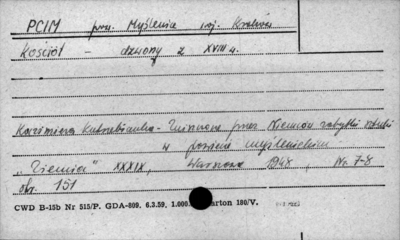 PCIM pow. Myślenice woj. Kraków
Kościół - dzwony z XVIII w.
Kazimiera Kutrzebianka - Zniszczone przez Niemców zabytki sztuki
w powiecie myślenickim
„Ziemia" XXXIX, Warszawa 1948, Nr 7-8
str. 151
CWD B-15b Nr 515/P. GDA-809. 6.3.59. 1.000. Karton 180/V.